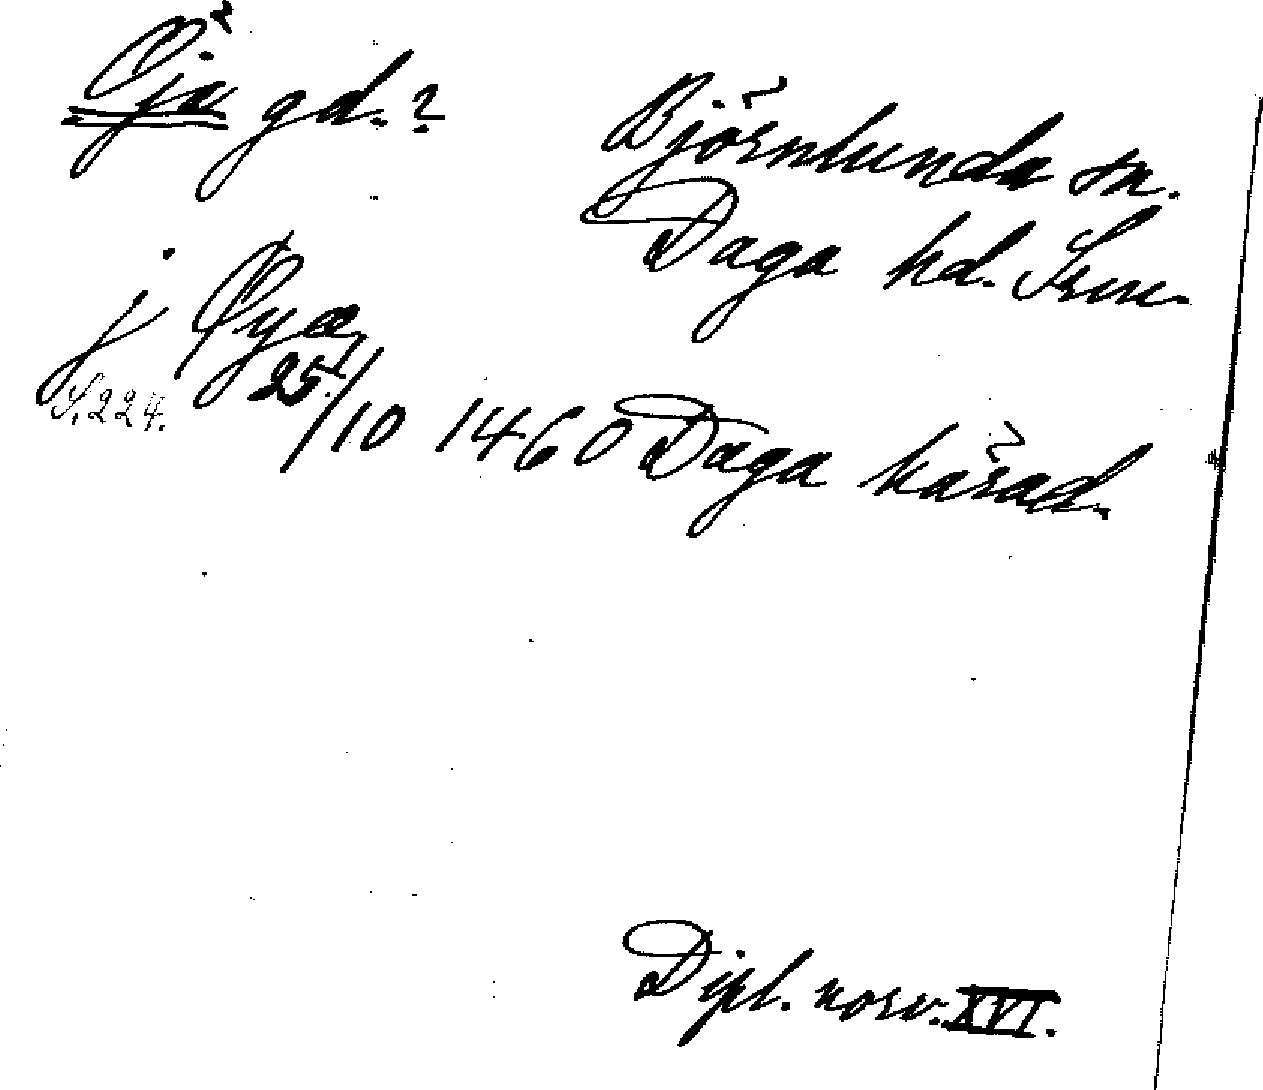 Öja gd.?
Björnlunda sn.
Daga hd. Srm.
j Øyæ
S. 224.
25/10 1460 Daga härad.
Dipl. norv. XVI.